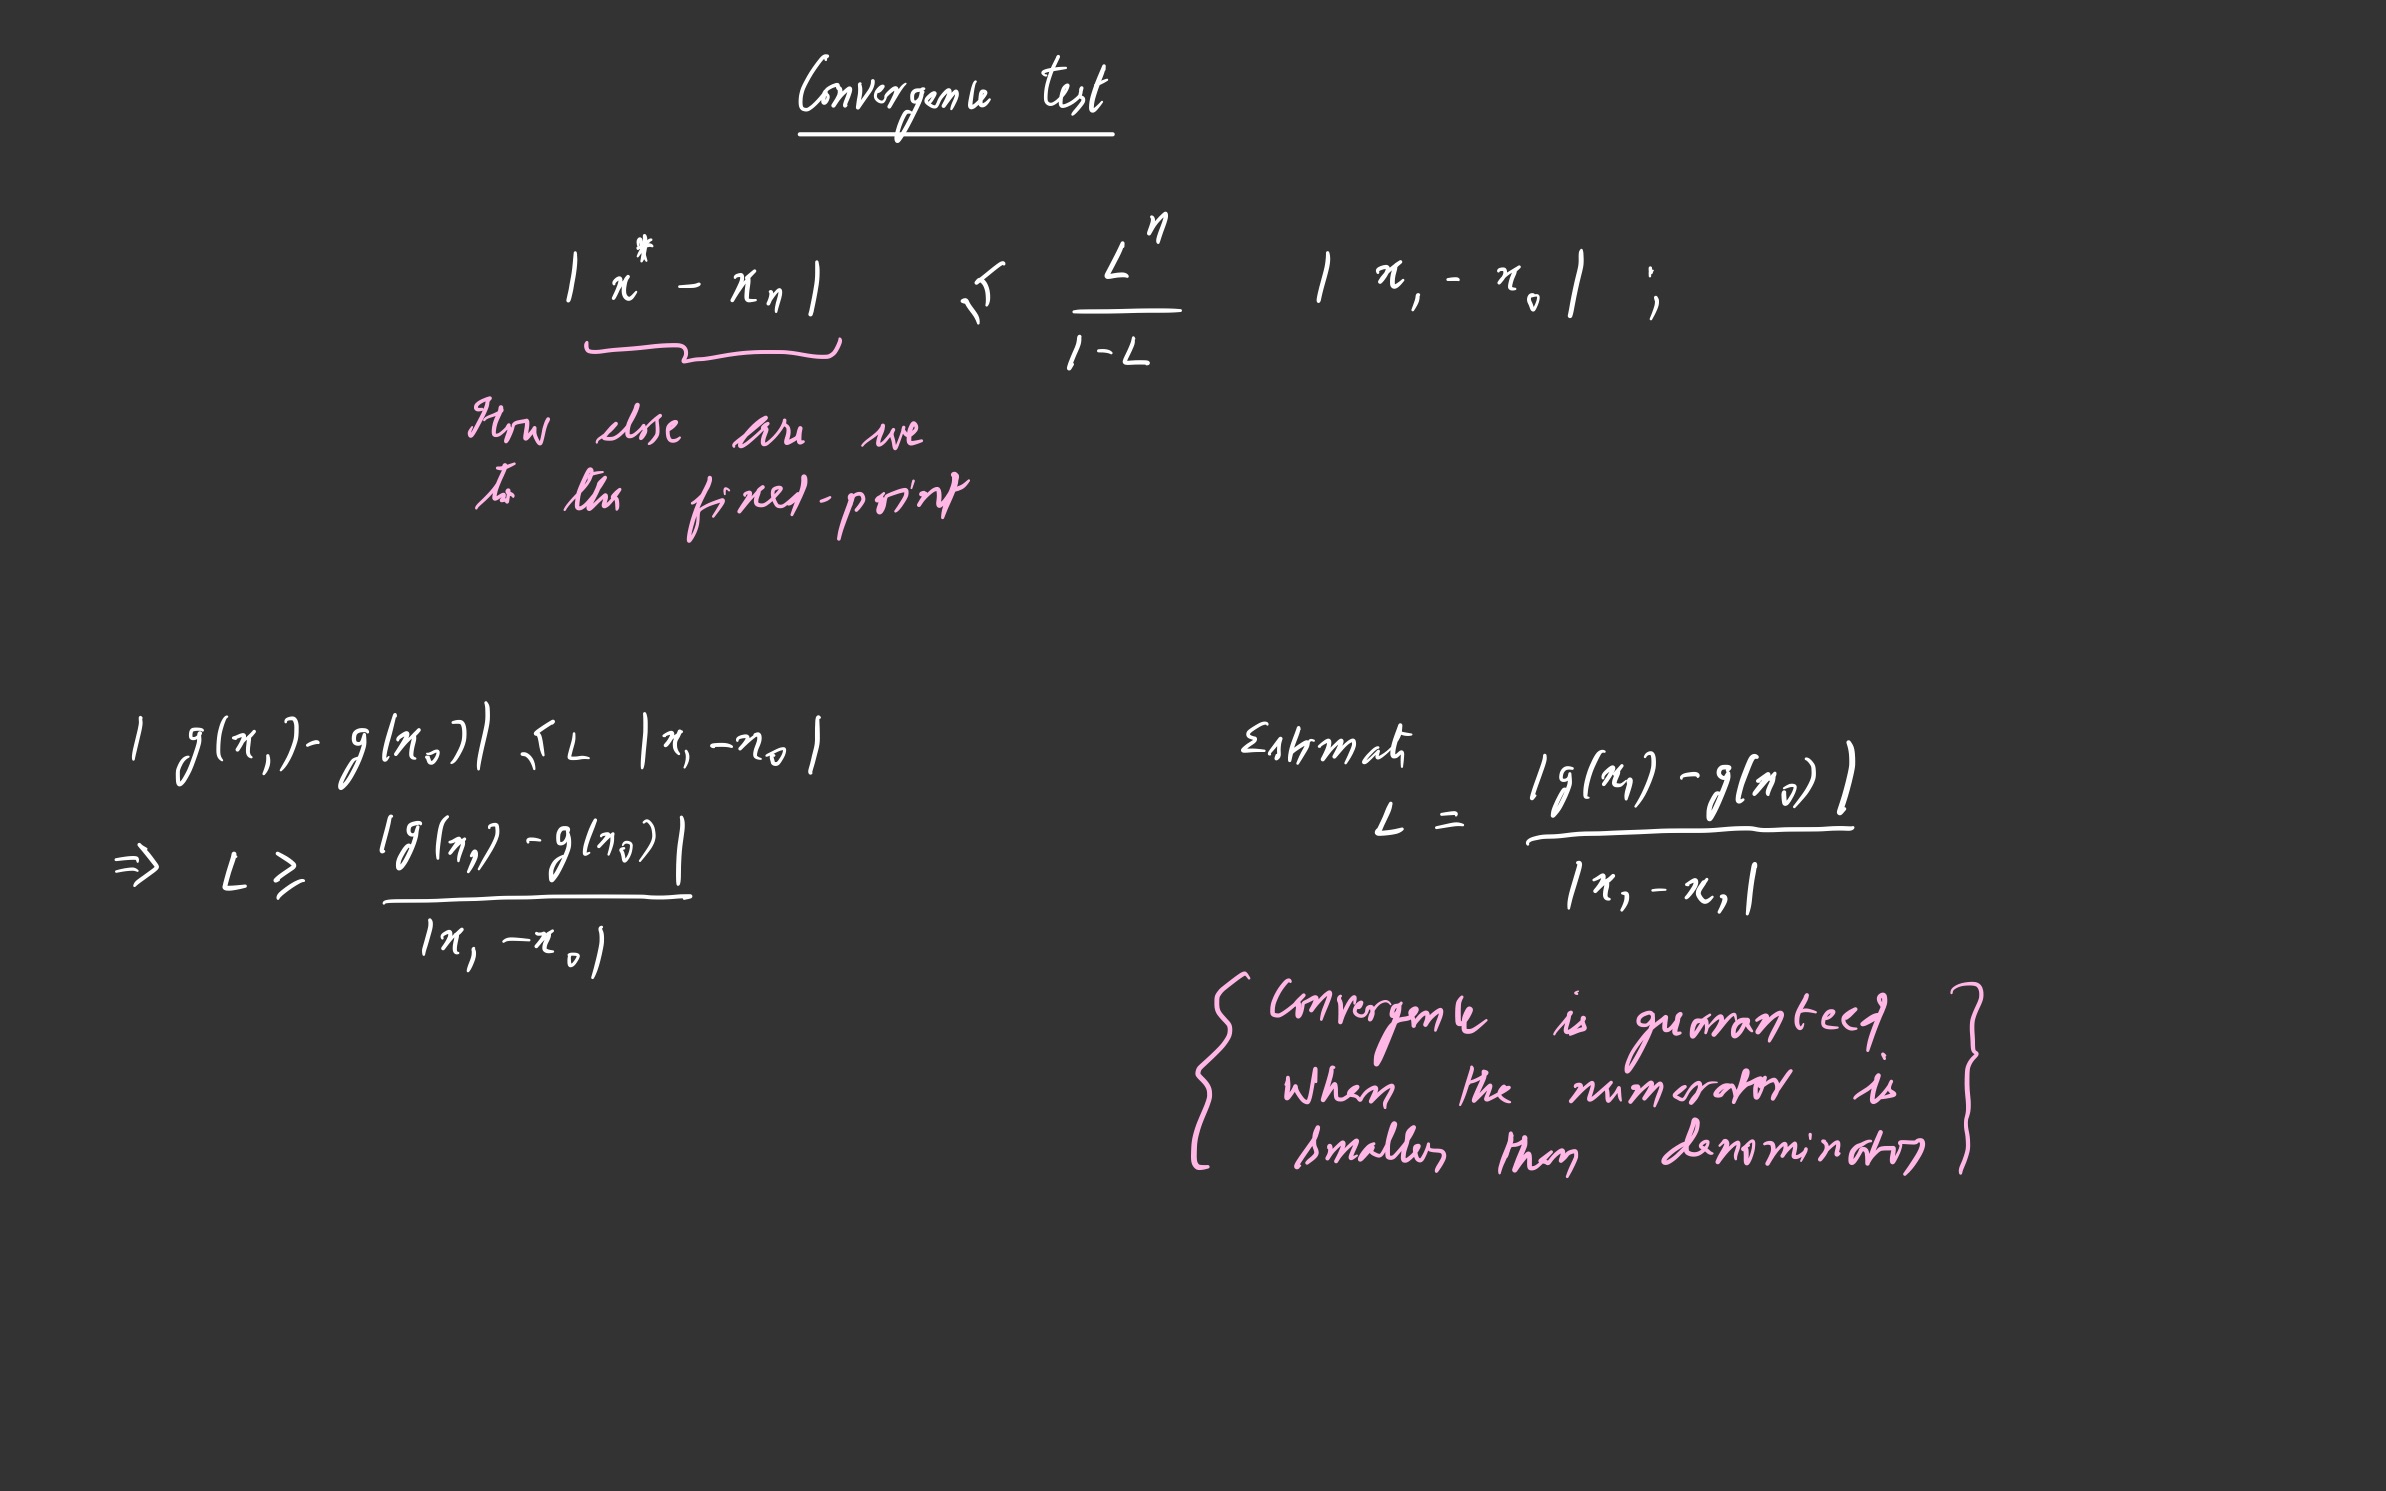 Convergence test
| x* - xₙ | ≤ Lⁿ / (1 - L) | x₁ - x₀ | ;
How close are we
to the fixed-point
| g(x₁) - g(x₀) | ≤ L | x₁ - x₀ |
⇒ L ≥ |g(x₁) - g(x₀)| / |x₁ - x₀|
Estimate
L = |g(x₁) - g(x₀)| / |x₁ - x₁|
{ Convergence is guaranteed
when the numerator is
smaller than denominator }